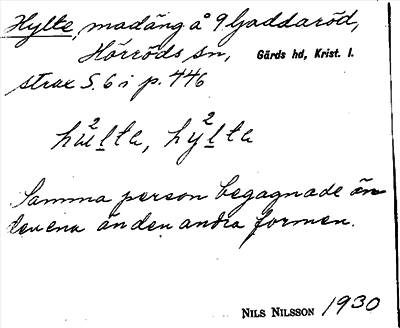 Hylte, madäng å Gaddaröd,
Hörröds sn, Gärds hd, Krist. l.
strax S. 6 i p. 446
hu²lta, hy²lta
Samma person begagnade än
den ena än den andra formen.
NILS NILSSON 1930